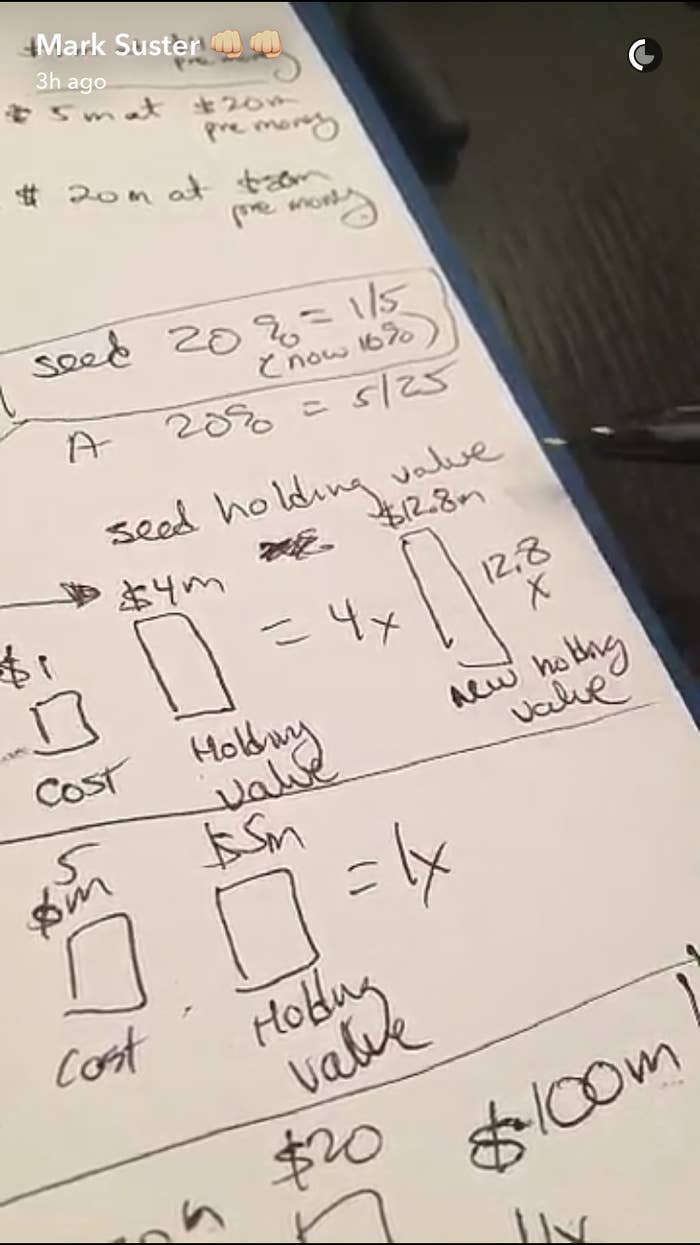 Mark Suster 👊🏼👊🏼
3h ago
pre money
$ 5 m at $20m
pre money
$ 20 m at
pre money
seed 20% = 1/5
(now 16%)
A 20% = 5/25
seed holding value
$12.8m
$4m
= 4x
12.8
x
$1
new holding
value
Cost
Holding
value
5
$m
$5m
= 1x
Cost
Holding
value
$20
$100m